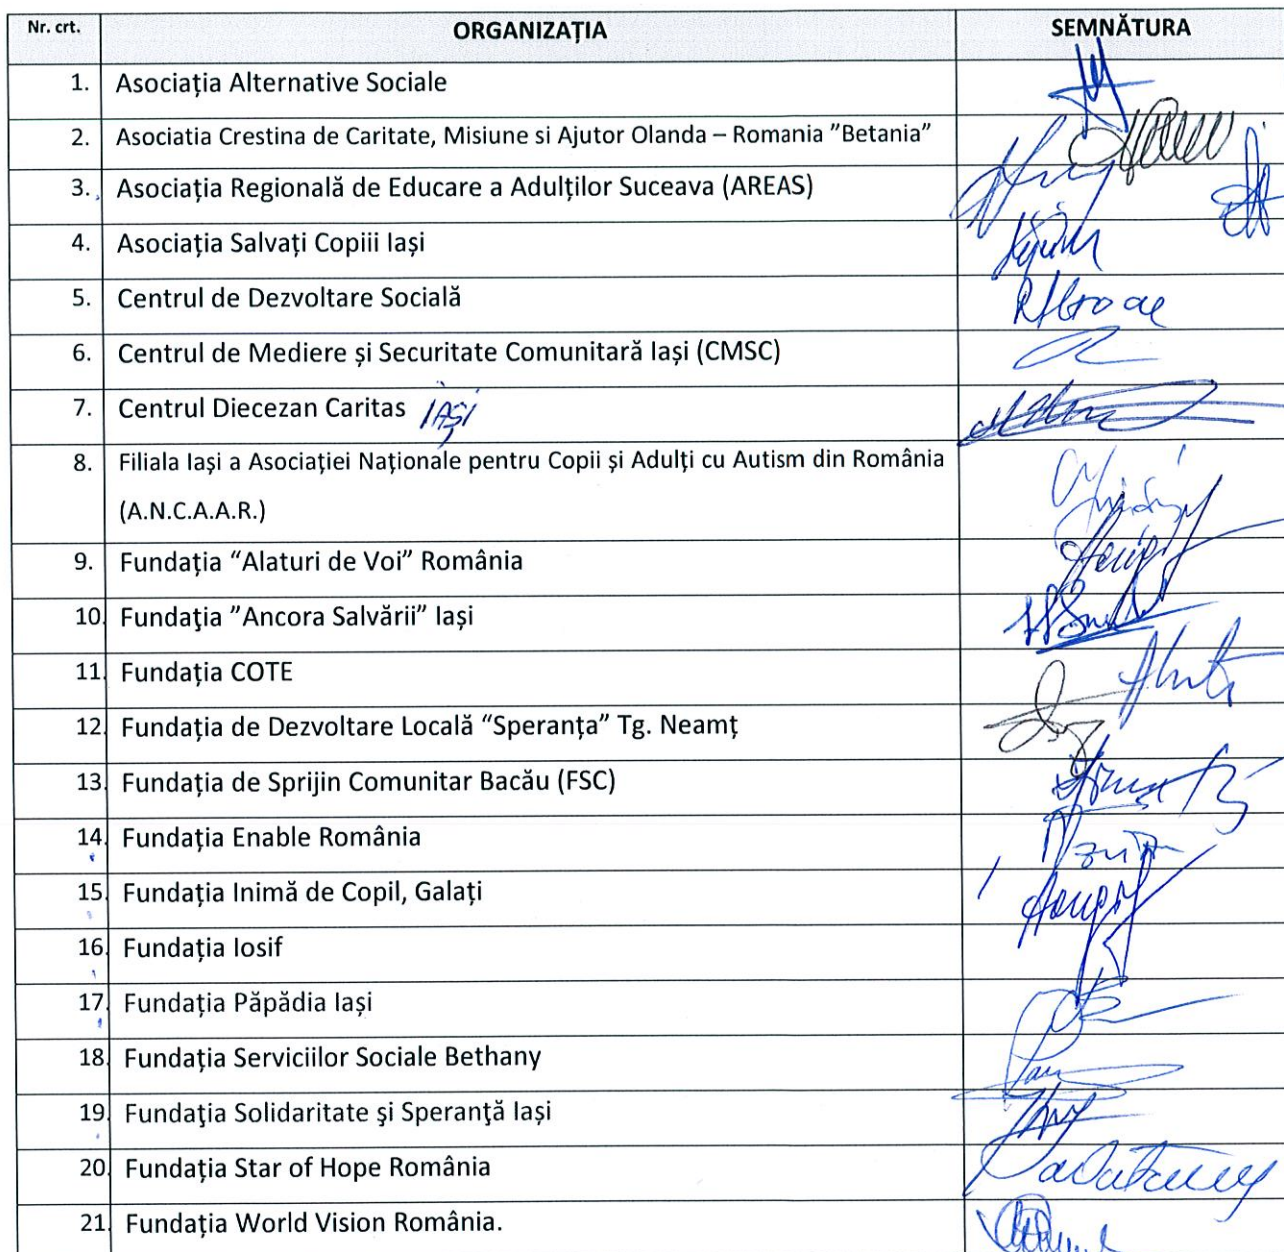 Nr. crt. ORGANIZAȚIA SEMNĂTURA
1. Asociația Alternative Sociale
2. Asociatia Crestina de Caritate, Misiune si Ajutor Olanda – Romania ”Betania”
3. Asociația Regională de Educare a Adulților Suceava (AREAS)
4. Asociația Salvați Copiii Iași
5. Centrul de Dezvoltare Socială
6. Centrul de Mediere și Securitate Comunitară Iași (CMSC)
7. Centrul Diecezan Caritas IAȘI
8. Filiala Iaşi a Asociației Naționale pentru Copii și Adulți cu Autism din România
(A.N.C.A.A.R.)
9. Fundația “Alaturi de Voi” România
10. Fundaţia ”Ancora Salvării” Iași
11. Fundația COTE
12. Fundația de Dezvoltare Locală “Speranța” Tg. Neamț
13. Fundația de Sprijin Comunitar Bacău (FSC)
14. Fundația Enable România
15. Fundația Inimă de Copil, Galați
16. Fundația Iosif
17. Fundația Păpădia Iași
18. Fundația Serviciilor Sociale Bethany
19. Fundaţia Solidaritate şi Speranţă Iași
20. Fundația Star of Hope România
21. Fundația World Vision România.